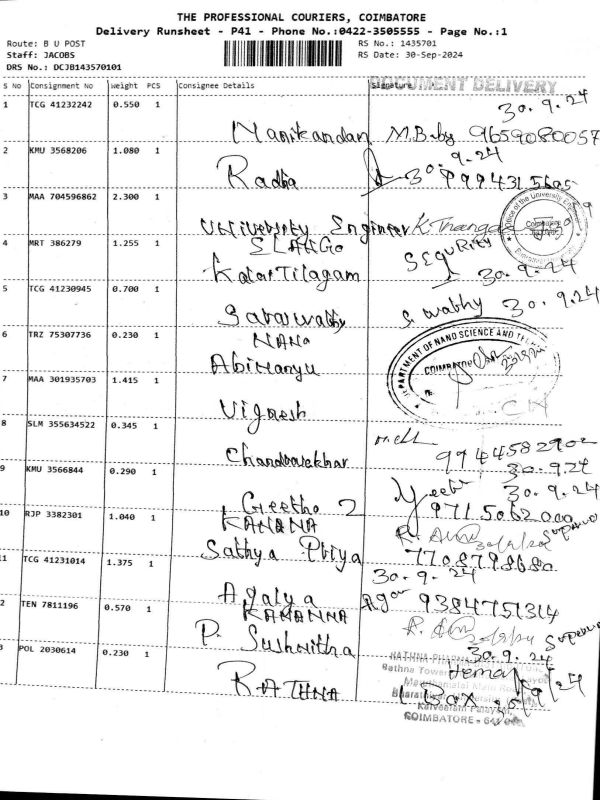 THE PROFESSIONAL COURIERS, COIMBATORE
Delivery Runsheet - P41 - Phone No.:0422-3505555 - Page No.:1
Route: B U POST
RS No.: 1435701
Staff: JACOBS
RS Date: 30-Sep-2024
DRS No.: DCJB143570101
DOCUMENT DELIVERY
S No Consignment No Weight PCS Consignee Details Signature
1 TCG 41232242 0.550 1
30.9.24
Manikandan M.Baby 9659080057
2 KMU 3568206 1.080 1
30.9.24
Radha
3 MAA 704596862 2.300 1
Office of the University Engineer
University Engineer
4 MRT 386279 1.255 1
ELANGO
SEQURITY
KalaiTilagam 30.9.24
5 TCG 41230945 0.700 1
Saraswathy S. wathy 30.9.24
6 TRZ 75307736 0.230 1
NANO
DEPARTMENT OF NANO SCIENCE AND
Abimanyu
7 MAA 301935703 1.415 1
Vignesh
8 SLM 355634522 0.345 1
9944582902
Chandrasekhar 30.9.24
9 KMU 3566844 0.290 1
30.9.24
Geetha 2
10 RJP 3382301 1.040 1
KANANA
Sathya Priya 7708798680
11 TCG 41231014 1.375 1
30.9.24
Agalya 9384751314
2 TEN 7811196 0.570 1
KANANNA
P. Sushmitha
30.9.24
3 POL 2030614 0.230 1
Rathna Tower
Hema
RATHNA
1 Box
COIMBATORE - 641